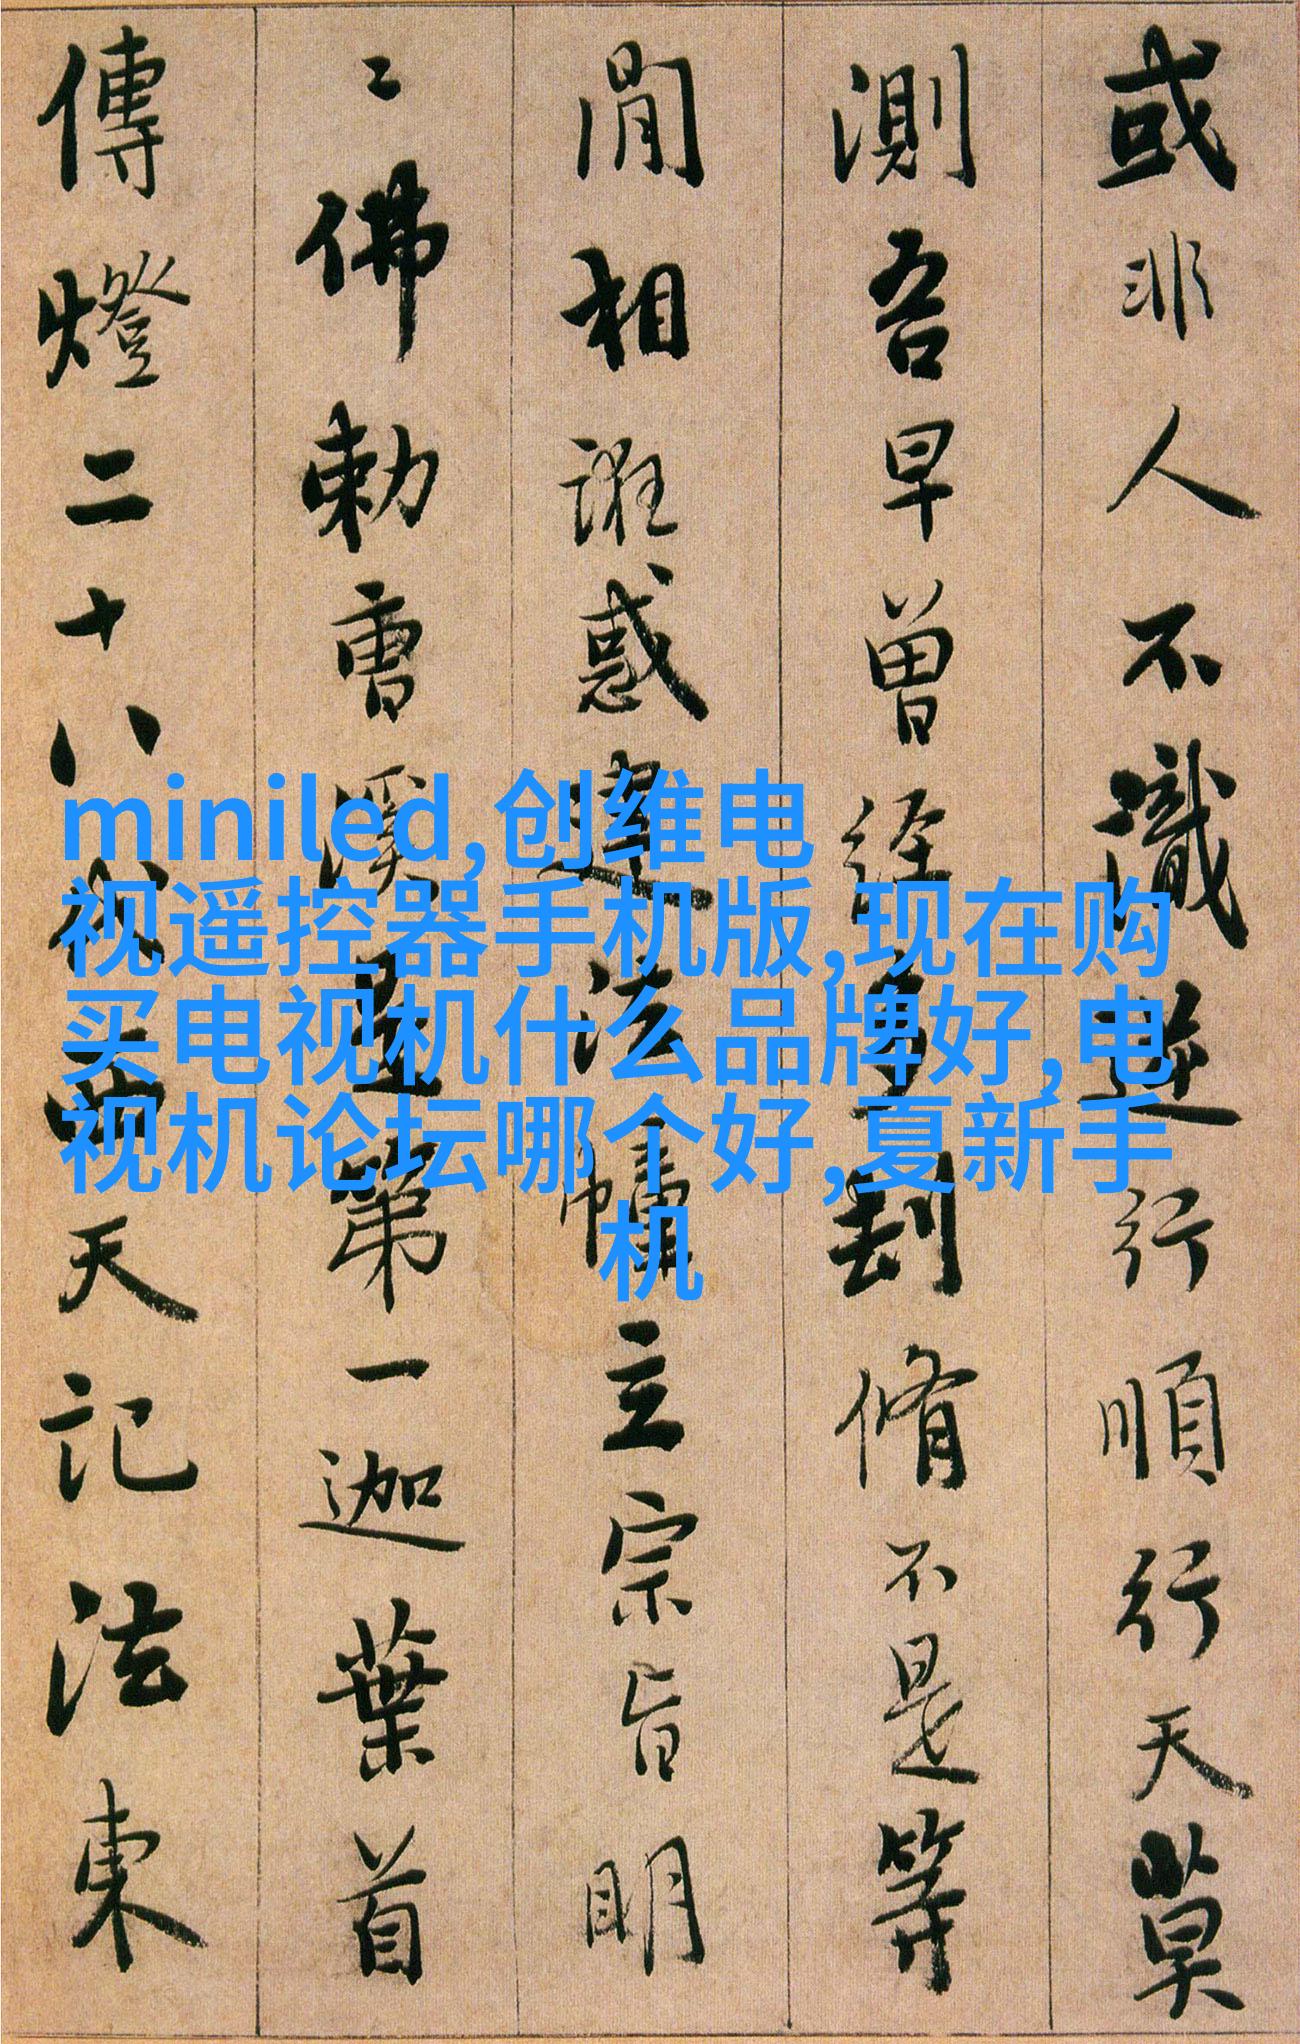 或非人不識逆行順行天莫
測吾早曾經多劫脩不是等
閒相誑惑建法幢立宗旨明
〻佛勅曹溪是第一迦葉首
傳燈二十八代西天記法東
miniled,创维电
视遥控器手机版,现在购
买电视机什么品牌好,电
视机论坛哪个好,夏新手
机